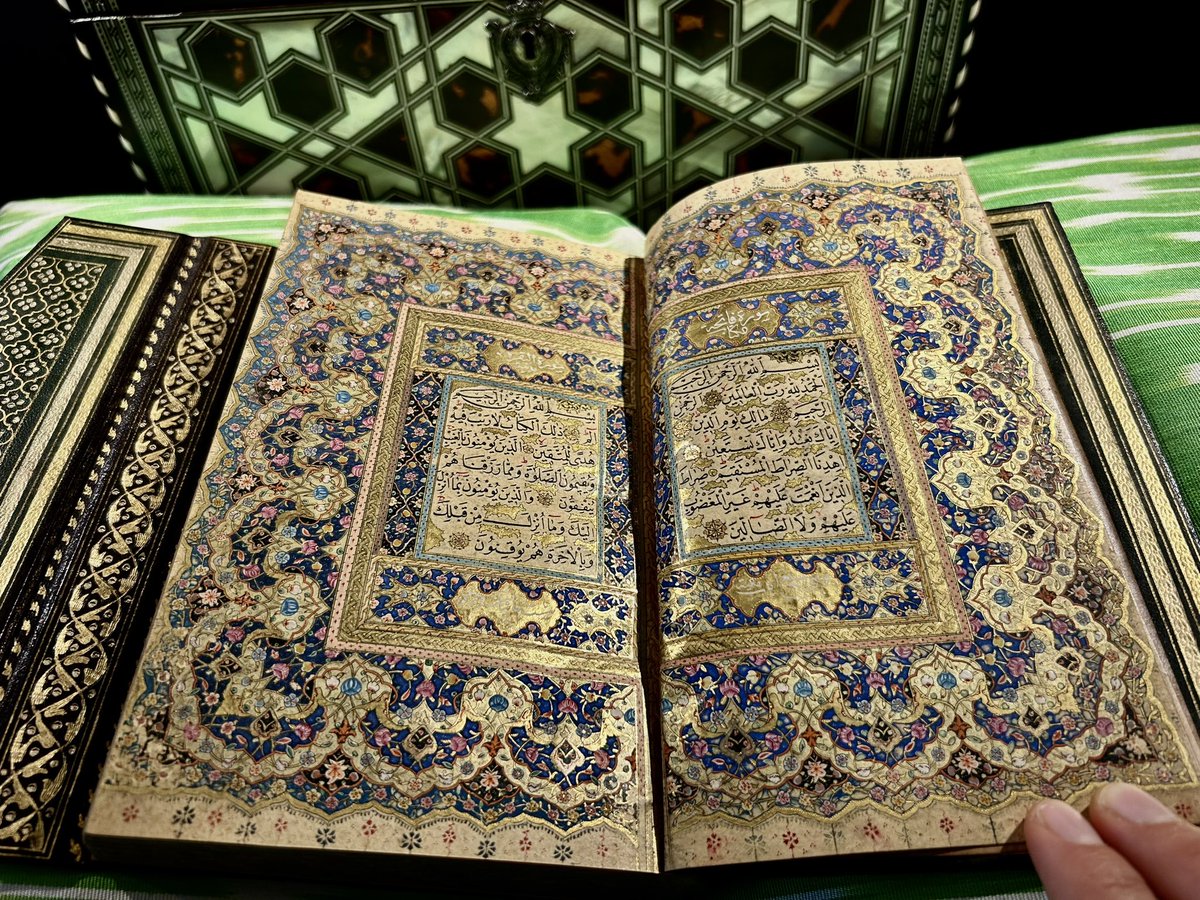 بِسْمِ اللهِ الرَّحْمٰنِ الرَّحِيمِ
اَلْحَمْدُ لِلّٰهِ رَبِّ الْعَالَمِينَ الرَّحْمٰنِ
الرَّحِيمِ مَالِكِ يَوْمِ الدِّينِ
اِيَّاكَ نَعْبُدُ وَاِيَّاكَ نَسْتَعِينُ
اِهْدِنَا الصِّرَاطَ الْمُسْتَقِيمَ صِرَاطَ
الَّذِينَ اَنْعَمْتَ عَلَيْهِمْ غَيْرِ الْمَغْضُوبِ
عَلَيْهِمْ وَلَا الضَّالِّينَ
بِسْمِ اللهِ الرَّحْمٰنِ الرَّحِيمِ
الٓمٓ ذٰلِكَ الْكِتَابُ لَا رَيْبَ فِيهِ
هُدًى لِلْمُتَّقِينَ الَّذِينَ يُؤْمِنُونَ بِالْغَيْبِ
وَيُقِيمُونَ الصَّلٰوةَ وَمِمَّا رَزَقْنَاهُمْ
يُنْفِقُونَ وَالَّذِينَ يُؤْمِنُونَ بِمَا اُنْزِلَ
اِلَيْكَ وَمَا اُنْزِلَ مِنْ قَبْلِكَ
وَبِالْاٰخِرَةِ هُمْ يُوقِنُونَ